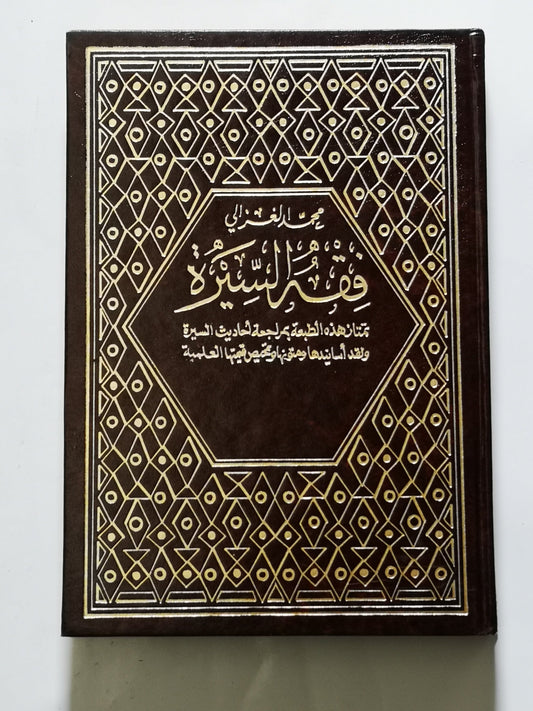 محمد الغزالي
فقه السيرة
تمتاز هذه الطبعة بمراجعة أحاديث السيرة
ونقد أسانيدها ومتونها وتمحيص قيمتها العلمية